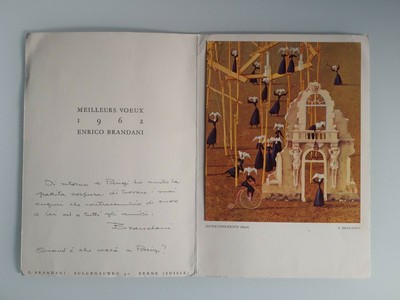 MEILLEURS VOEUX
1 9 6 2
ENRICO BRANDANI
Di ritorno a Parigi ho avuto la
gradita sorpresa di trovare i suoi
auguri che contraccambio di cuore
a Lei ed a tutti gli amici.
Brandani
Quand'è che verrà a Parigi?
E. BRANDANI BERNE (SUISSE)
E. BRANDANI